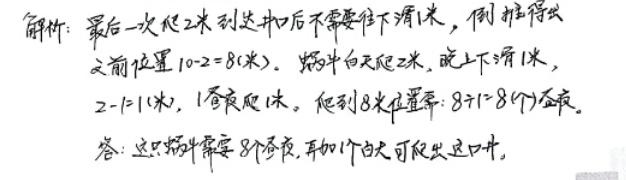 解析：最后一次爬2米到达井口后不需要往下滑1米，倒推得出
之前位置10-2=8(米)。蜗牛白天爬2米，晚上下滑1米，
2-1=1(米)，1昼夜爬1米。爬到8米位置需：8÷1=8(个)昼夜。
答：这只蜗牛需要8个昼夜，再加1个白天可爬出这口井。